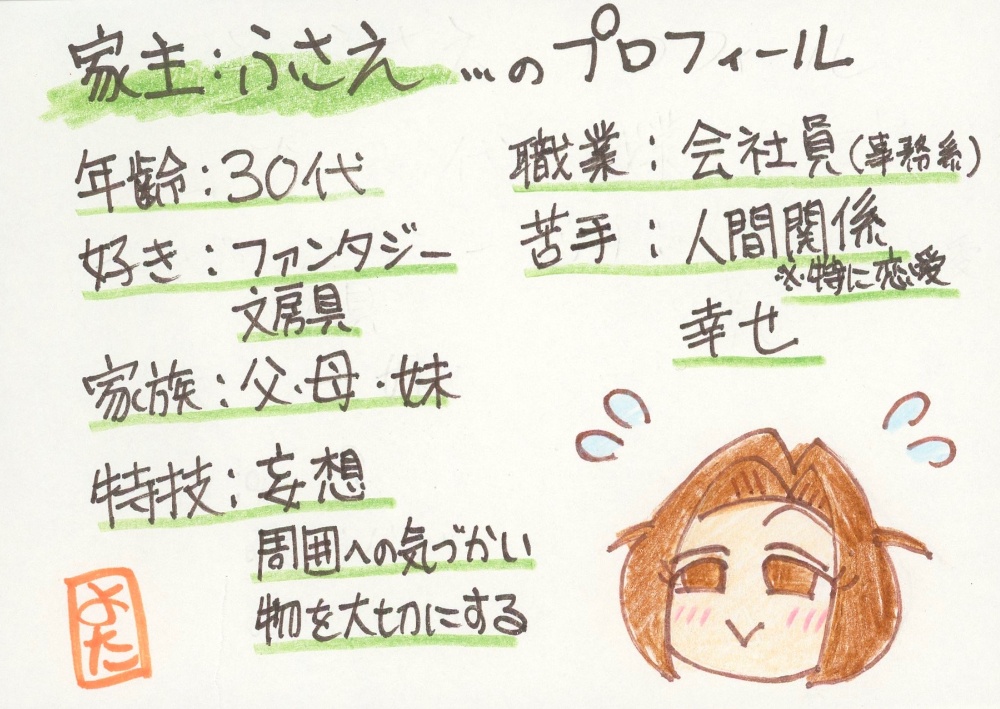 家主：ふさえ …のプロフィール
年齢：30代
好き：ファンタジー
文房具
家族：父・母・妹
特技：妄想
周囲への気づかい
物を大切にする
職業：会社員(事務系)
苦手：人間関係
※特に恋愛
幸せ
よた